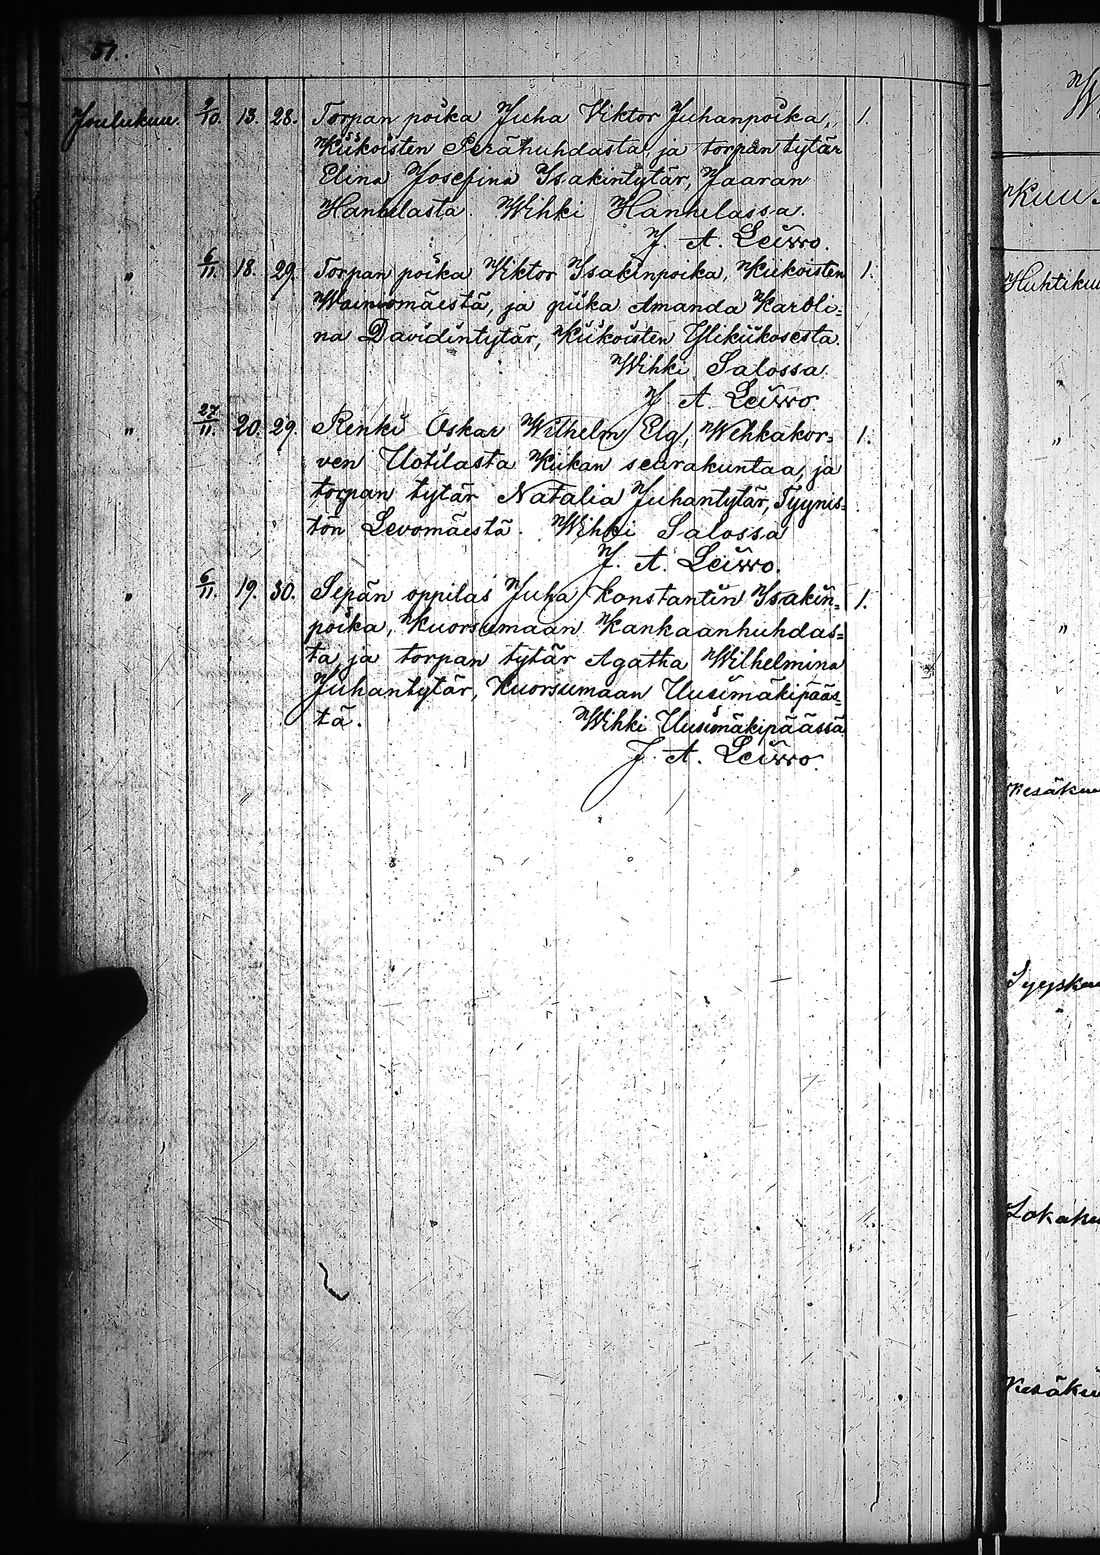 51.
Joulukuu. 9/10. 13. 28. Torpan poika Juha Viktor Juhanpoika, 1.
Kiikoisten Perähuhdasta, ja torpan tytär
Elina Josefina Isakintytär, Jaaran
Hannulasta. Wihki Hannulassa.
J. A. Leivo.
" 6/11. 18. 29. Torpan poika Viktor Isakinpoika, Kiikoisten 1.
Wainiomäestä, ja piika Amanda Karoli-
na Davidintytär, Kiikoisten Ylikiikosesta.
Wihki Salossa
J. A. Leivo.
" 27/11. 20. 29. Renki Oskar Wilhelm Elg, Wehkakor- 1.
ven Uotilasta Kiikan seurakuntaa, ja
torpan tytär Natalia Juhantytär, Tyynis-
tön Levomäestä. Wihki Salossa
J. A. Leivo.
" 6/11. 19. 30. Sepän oppilas Juha Konstantin Isakin- 1.
poika, Kuorsumaan Kankaanhuhdas-
ta, ja torpan tytär Agatha Wilhelmina
Juhantytär, Kuorsumaan Uusimäkipääs-
tä. Wihki Uusimäkipäässä
J. A. Leivo.
W
kuu.
Huhtikuu
"
"
"
Kesäkuu
Syysku
"
Lokaku
Kesäku